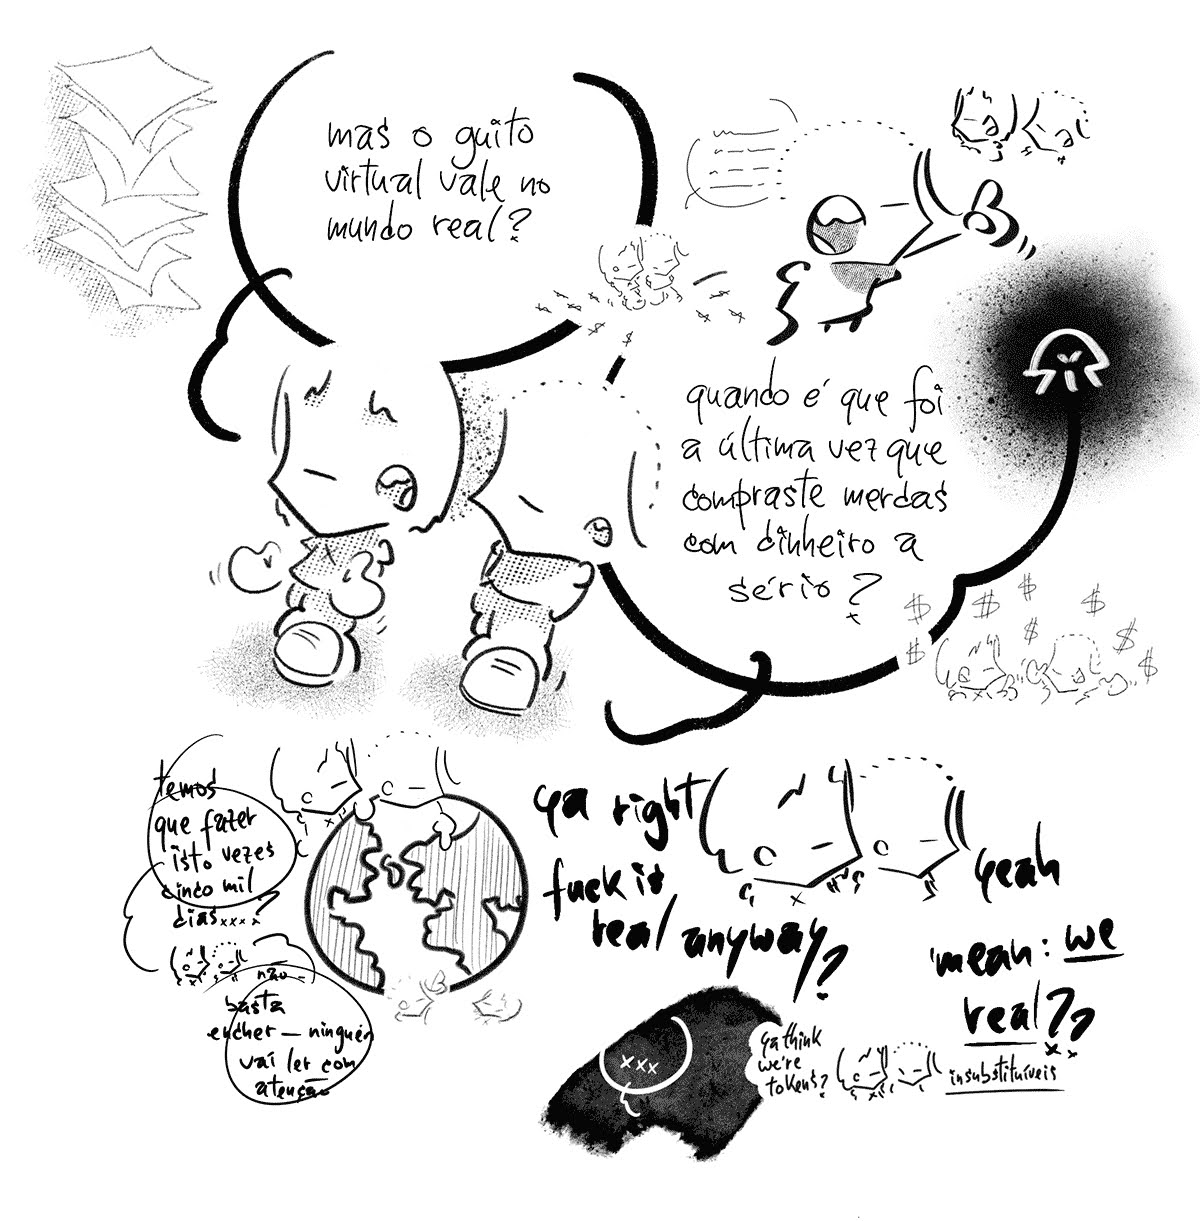 mas o guito
virtual vale no
mundo real?
quando é que foi
a última vez que
compraste merdas
com dinheiro a
sério?
$ $ $ $ $ $ $ $
temos
que fazer
isto vezes
cinco mil
dias....?
não
basta
encher – ninguém
vai ler com
atenção
ya right
fuck is
real anyway?
yeah
mean: we
real??
xxx
ya think
we're
tokens?
insubstituíveis